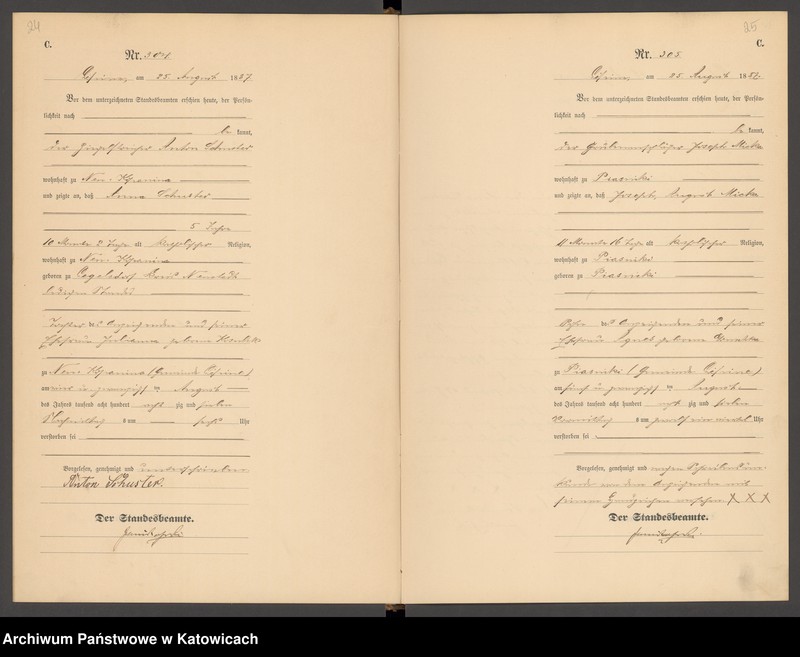 24
C.
Nr. 304.
am 25. August 1887.
Vor dem unterzeichneten Standesbeamten erschien heute, der Persön-
lichkeit nach
be kannt,
der Anton Schuster
wohnhaft zu Neu-
und zeigte an, daß Anna Schuster
5 Jahre
10 Monate 2 Tage alt katholischer Religion,
wohnhaft zu Neu-
geboren zu Kreis Neustadt
ledigen Standes
Tochter des Anzeigenden und seiner
Ehefrau Julianna geborene
zu Neu- (Gemeinde
am vier u zwanzigsten August
des Jahres tausend acht hundert acht zig und sieben
Nachmittag s um sechs Uhr
verstorben sei
Vorgelesen, genehmigt und unterschrieben
Anton Schuster
Der Standesbeamte.
25
C.
Nr. 305
am 25. August 1887.
Vor dem unterzeichneten Standesbeamten erschien heute, der Persön-
lichkeit nach
be kannt,
der Joseph
wohnhaft zu Piasniki
und zeigte an, daß Joseph, August
11 Monate 16 Tage alt katholischer Religion,
wohnhaft zu Piasniki
geboren zu Piasniki
Sohn des Anzeigenden und seiner
Ehefrau Agnes geborene
zu Piasniki (Gemeinde
am fünf u zwanzigsten August
des Jahres tausend acht hundert acht zig und sieben
Vormittag s um zwölf ein viertel Uhr
verstorben sei
Vorgelesen, genehmigt und wegen
von dem Anzeigenden mit
seinem Handzeichen versehen X X X
Der Standesbeamte.
Archiwum Państwowe w Katowicach